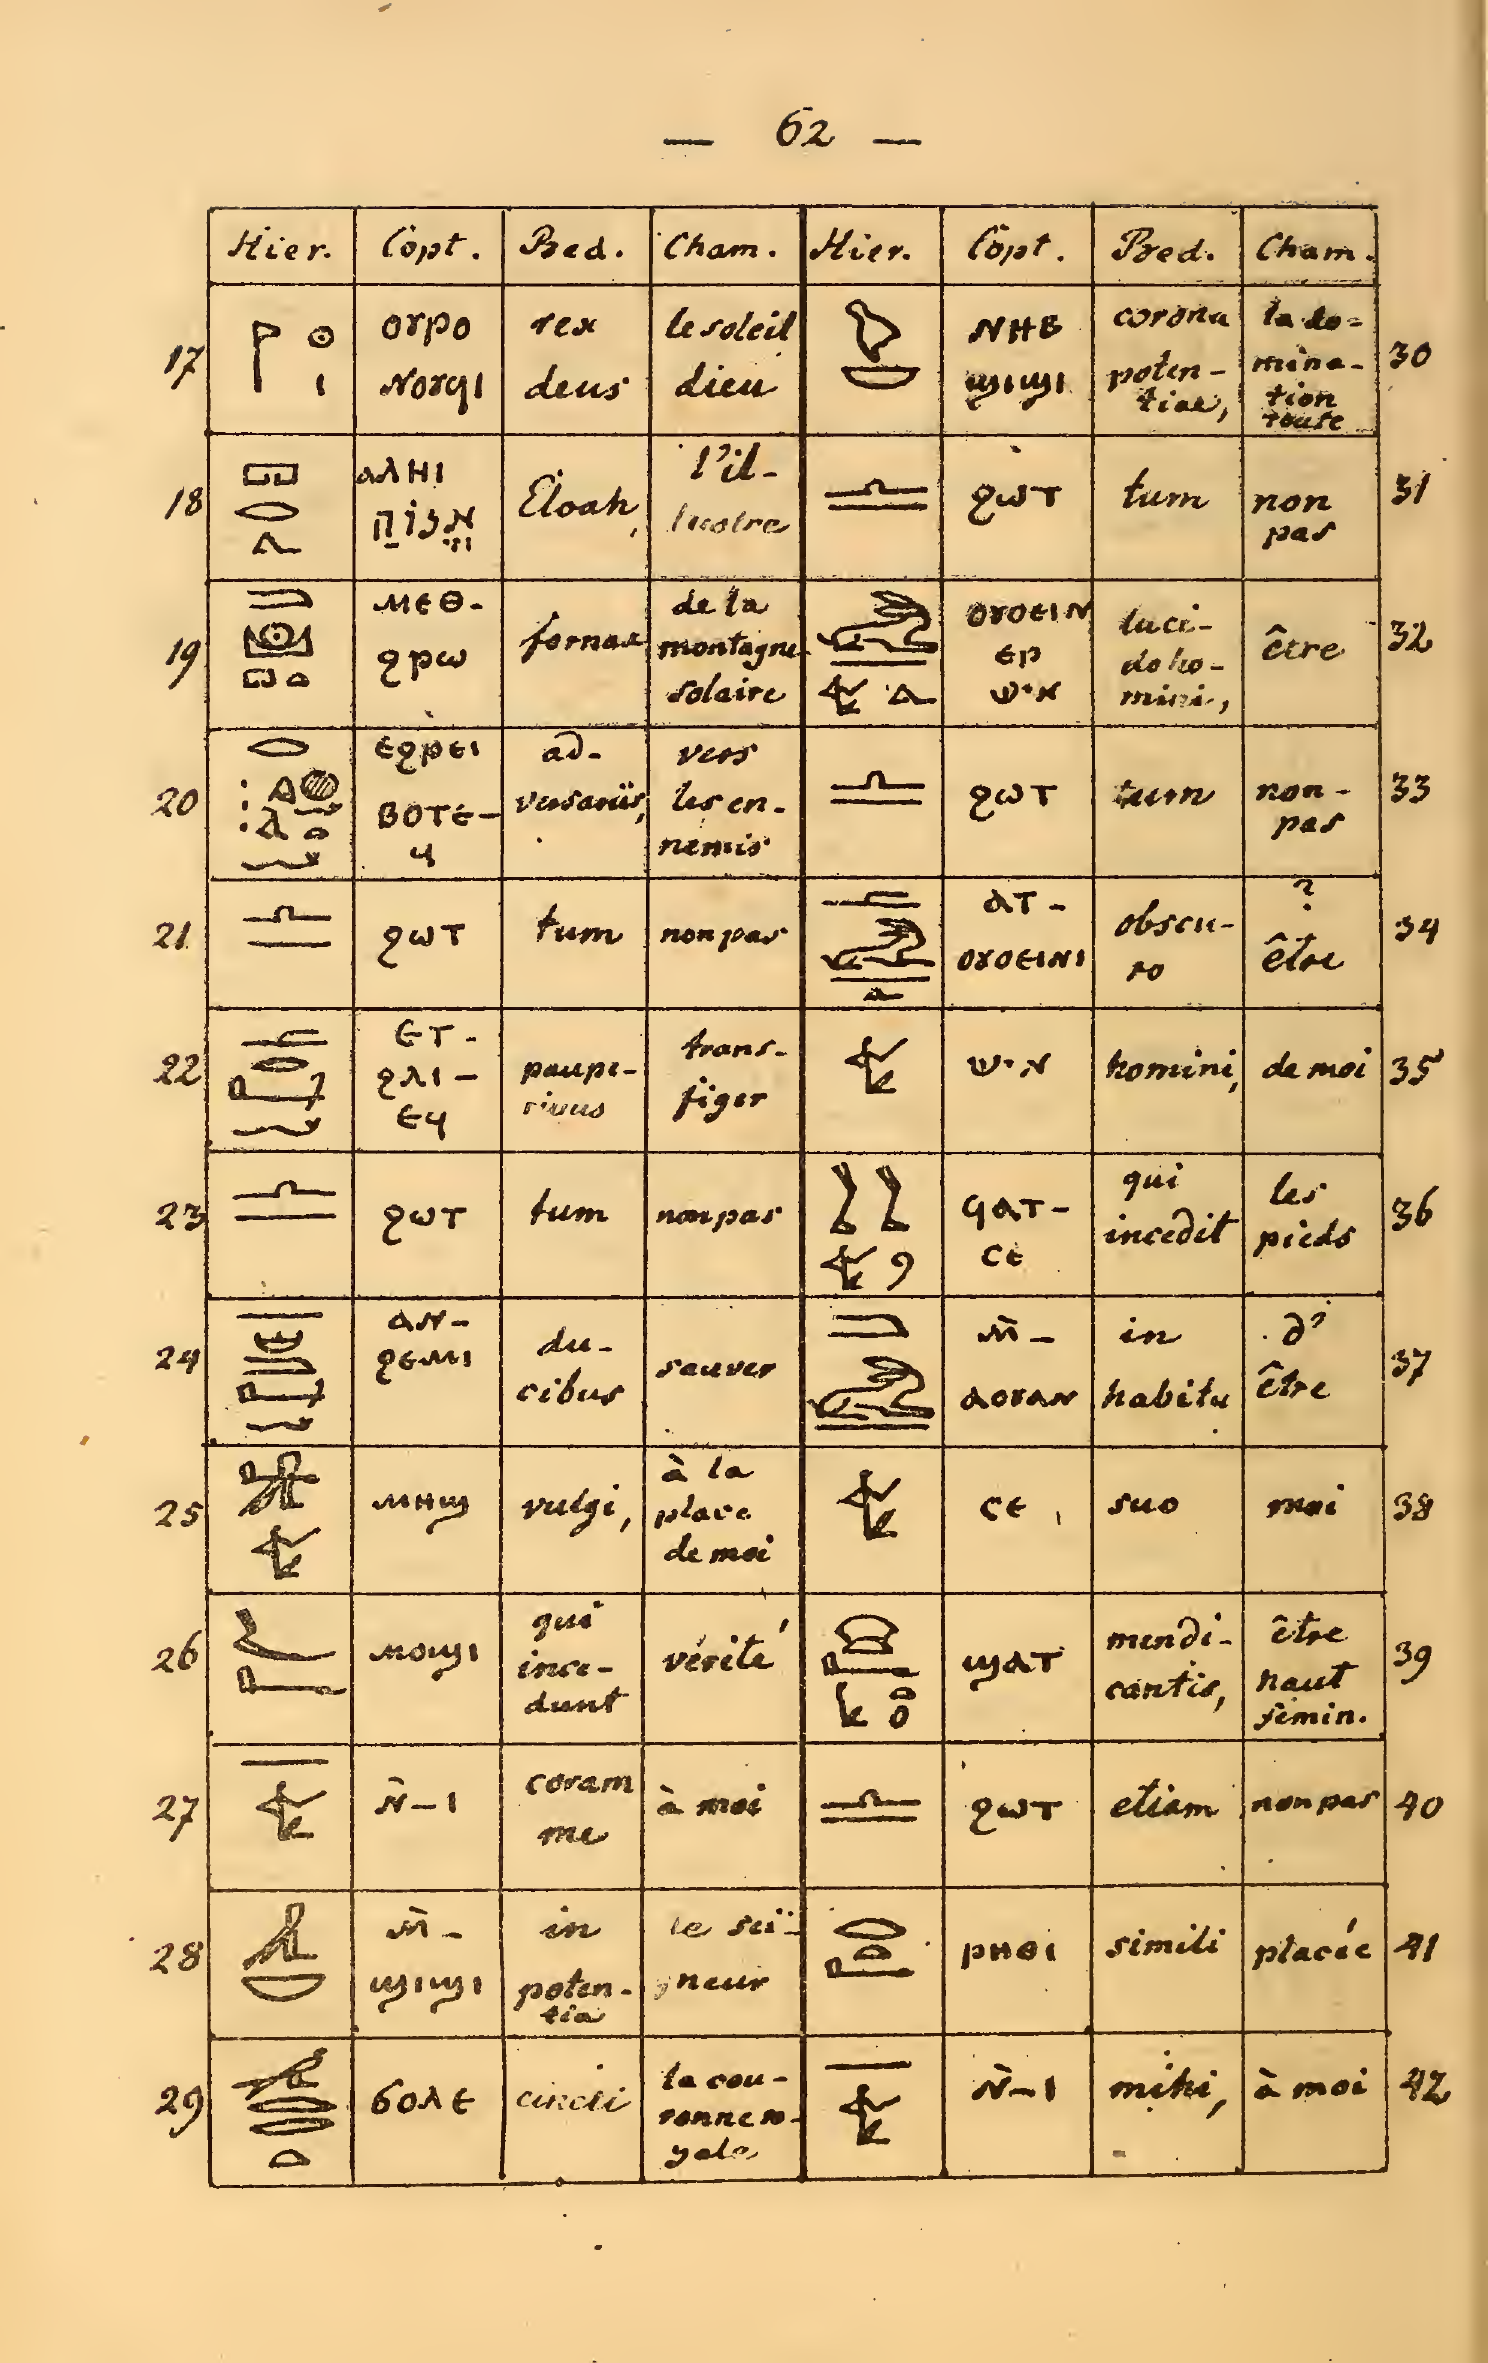 — 62 —
Hier. Copt. Pred. Cham. Hier. Copt. Pred. Cham.
17
ⲟⲩⲣⲟ
ⲛⲟⲩϥⲓ
rex
deus
le soleil
dieu
ⲛⲏⲃ
ϣⲓϣⲓ
corona
poten-
tiae,
la do-
mina-
tion
toute
30
18
ⲁⲗⲏⲓ
Eloah,
l'il-
lustre
ϩⲱⲧ
tum
non
pas
31
19
ⲙⲉⲑ-
ϩⲣⲱ
fornax
de la
montagne
solaire
ⲟⲩⲟⲉⲓⲛ
ⲉⲣ
איש
luci-
do ho-
mini,
être
32
20
ⲉϩⲣⲉⲓ
ⲃⲟⲧⲉ-
ϥ
ad-
versariis,
vers
les en-
nemis
ϩⲱⲧ
tum
non-
pas
33
21
ϩⲱⲧ
tum
non pas
ⲁⲧ-
ⲟⲩⲟⲉⲓⲛⲓ
obscu-
ro
?
être
34
22
ⲉⲧ-
ϩⲗⲓ-
ⲉϥ
paupe-
ribus
trans-
figer
איש
homini,
de moi
35
23
ϩⲱⲧ
tum
non pas
ϥⲁⲧ-
ⲥⲉ
qui
incedit
les
pieds
36
24
ⲁⲛ-
ϩⲉⲙⲓ
du-
cibus
sauver
ⲙ̄-
ⲁⲟⲩⲁⲛ
in
habitu
d'
être
37
25
ⲙⲏϣ
vulgi,
à la
place
de moi
ⲥⲉ
suo
moi
38
26
ⲙⲟϣⲓ
qui
ince-
dunt
vérité
ϣⲁⲧ
mendi-
cantis,
être
haut
fémin.
39
27
ⲛ̄-ⲓ
coram
me
à moi
ϩⲱⲧ
etiam
non pas
40
28
ⲙ̄-
ϣⲓϣⲓ
in
poten-
tia
le seï-
gneur
ⲣⲏϯ
simili
placée
41
29
ϭⲟⲗⲉ
cincti
la cou-
ronne ro-
yale
ⲛ̄-ⲓ
mihi,
à moi
42